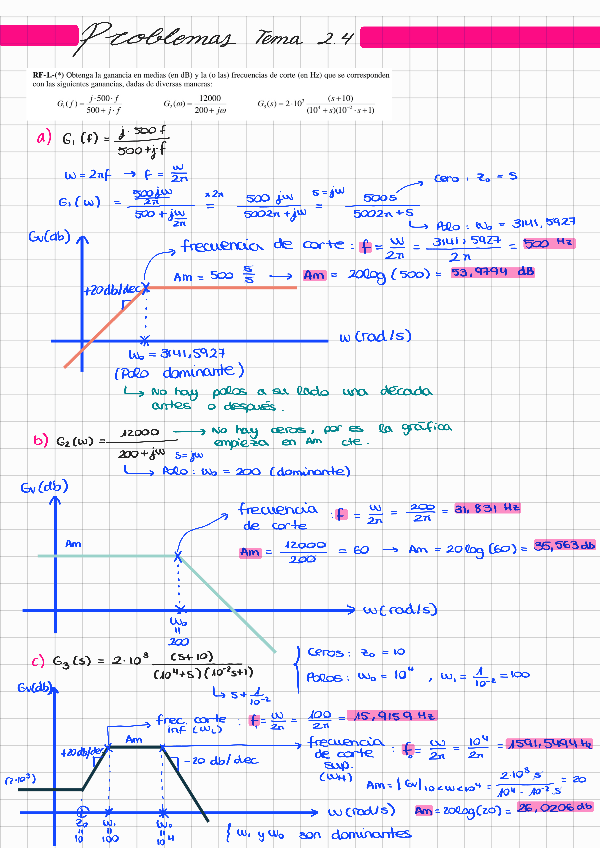 Problemas Tema 2.4
RF-1.-(*) Obtenga la ganancia en medias (en dB) y la (o las) frecuencias de corte (en Hz) que se corresponden
con las siguientes ganancias, dadas de diversas maneras:
G₁(f) = j·500·f / (500 + j·f)   G₂(ω) = 12000 / (200 + jω)   G₃(s) = 2·10³ · (s+10) / ((10⁴ + s)(10⁻²·s+1))
a) G₁(f) = j·500f / (500+jf)
w = 2πf → f = w/2π
G₁(w) = (500jw/2π) / (500 + jw/2π) =(×2π) 500jw / (5002π+jw) =(s=jw) 500s / (5002π+s)
Cero: z₀ = s
Polo: w₀ = 3141,5927
Gv(db)
frecuencia de corte: f = w/2π = 3141,5927/2π = 500 Hz
+20db/dec
Am = 500 s/s → Am = 20log(500) = 53,9794 dB
w(rad/s)
w₀ = 3141,5927
(Polo dominante)
↳ No hay polos a su lado una década
antes o después.
b) G₂(w) = 12000 / (200+jw)
→ No hay ceros, por es la gráfica
empieza en Am cte.
s=jw
↳ Polo: w₀ = 200 (dominante)
Gv(db)
frecuencia de corte : f = w/2π = 200/2π = 31,831 Hz
Am
Am = 12000/200 = 60 → Am = 20log(60) = 35,563 db
w(rad/s)
w₀ = 200
c) G₃(s) = 2·10³ (s+10) / ((10⁴+s)(10⁻²s+1))
Ceros: z₀ = 10
Polos: w₀ = 10⁴, w₁ = 1/10⁻² = 100
↳ s + 1/10⁻²
Gv(db)
frec. corte inf (wL) : f = w/2π = 100/2π = 15,9159 Hz
Am
+20db/dec
-20 db/dec
frecuencia de corte sup. (wH) : f = w/2π = 10⁴/2π = 1591,5494 Hz
(2·10³)
Am = |Gv|10<w<10⁴ = 2·10³s / (10⁴·10⁻²·s) = 20
w(rad/s)
Am = 20log(20) = 26,0206 db
z₀ = 10
w₁ = 100
w₀ = 10⁴
{ w₁ y w₀ son dominantes